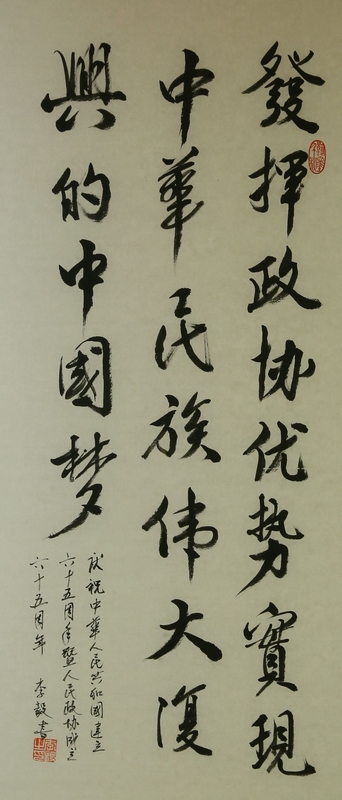 發揮政协优势實現
中華民族伟大復
興的中國梦
庆祝中華人民共和國建立
六十五周年暨人民政协成立
六十五周年 李毅書